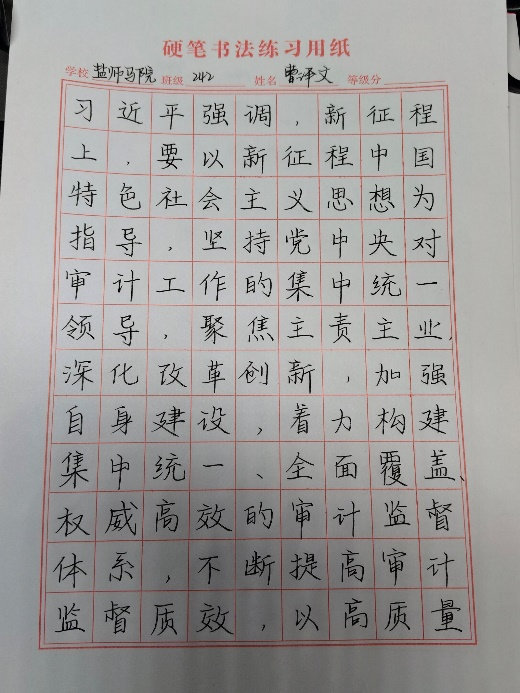 硬笔书法练习用纸
学校 盐师马院 班级 242 姓名 曹译文 等级分
习近平强调，新征程
上，要以新征程中国
特色社会主义思想为
指导，坚持党中央对
审计工作的集中统一
领导，聚焦主责主业、
深化改革创新，加强
自身建设，着力构建
集中统一、全面覆盖、
权威高效的审计监督
体系，不断提高审计
监督质效，以高质量